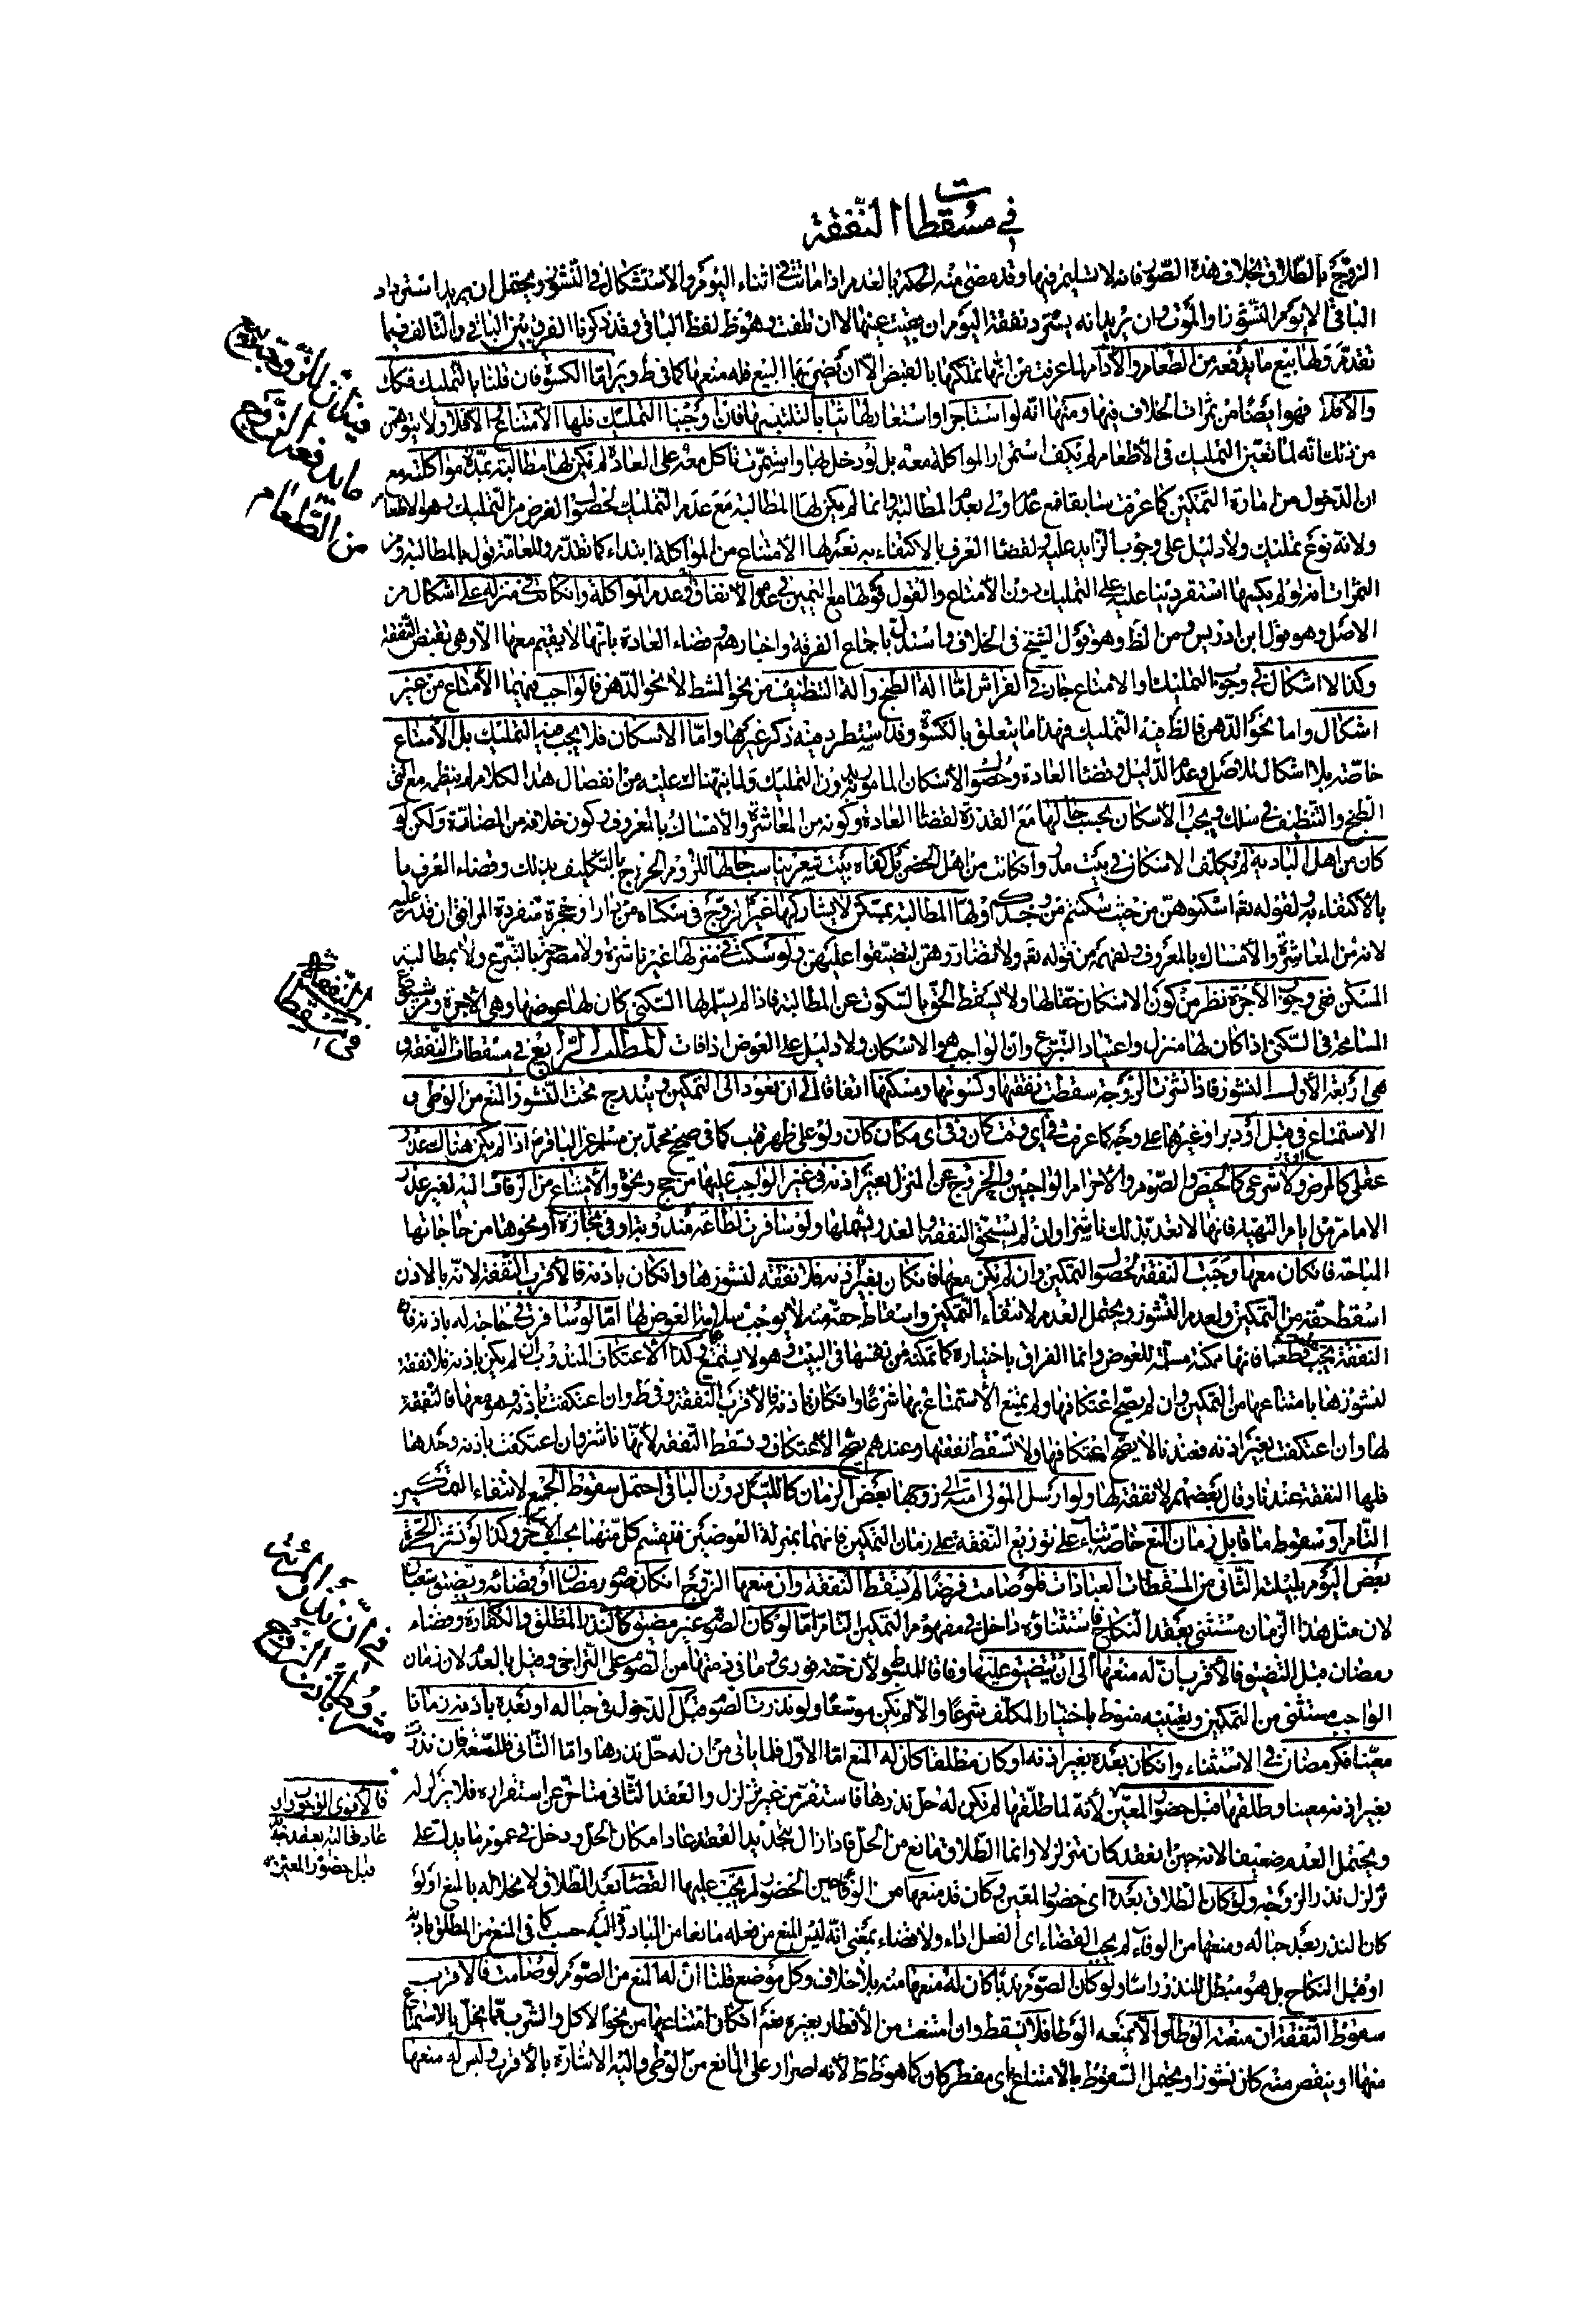 في مسقطات النفقة
الزوج بالطلاق بخلاف هذه الصور فانه لا تسليم فيها وقد مضى منه الحكم بالعدم اذا ماتت في اثناء اليوم والاستشكال في النشوز ويحتمل ان يريد استرداد
الباقي لا يوم النشوز او الموت وان يريد انه يسترد نفقة اليوم ان بقيت عينها لا ان تلفت وهو ظ لفظ الباقي وقد ذكرنا الفرق بين الباقي والتالف فيما
تقدم ولها بيع ما يدفعه من الطعام والادام لما عرفت من انها تملكها بالقبض الا ان تضر بها البيع فله منعها كما في ط وير اما الكسوة فان قلنا بالتمليك فكك
والا فلا فهو ايضا من ثمرات الخلاف فيها ومنها انه لو استاجر او استعار لها ثيابا لتلبسها فان اوجبنا التمليك فلها الامتناع والا فلا ولا يتوهم
من ذلك انه لما تعين التمليك في الاطعام لم يكف استمرار المواكلة معه بل لو دخل بها واستمرت تاكل معه على العادة لم يكن لها مطالبته بمدة مواكلته مع
ان الدخول من امارة التمكين كما عرفت سابقا فمع عدمه اولى بعدم المطالبة وانما لم يكن لها المطالبة مع عدم التمليك لحصول الغرض من التمليك وهو الاطعام
ولانه نوع تمليك ولا دليل على وجوب الزايد عليه ولقضاء العرف بالاكتفاء به نعم لها الامتناع من المواكلة ابتداء كما تقدم وللعامة قول بالمطالبة ومن
الثمرات انه لو لم يكسها استقر دينا عليه على التمليك دون الامتاع والقول قولها مع اليمين في عدم الانفاق في عدم المواكلة وان كانت في منزله على اشكال من
الاصل وهو قول ابن ادريس ومن الظ وهو قول الشيخ في الخلاف واستدل باجماع الفرقة واخبارهم وقضاء العادة بانها لا يقيم معها الا وهي تقبض النفقة
وكذا لا اشكال في وجوه التمليك والامتاع جار في الفراش اما الة الطبخ والة التنظيف من نحو المشط لا نحو الدهن فالواجب فيهما الامتاع من غير
اشكال واما نحو الدهن فالظ فيه التمليك فهذا ما يتعلق بالكسوة وقد استطرد منه ذكر غيرها واما الاسكان فلا يجب فيه التمليك بل الامتاع
خاصة بلا اشكال للاصل وعدم الدليل وقضاء العادة وحصول الاسكان المامور به بدون التمليك ولما نبهناك عليه من انفصال هذا الكلام لم ينظمه مع التي
الطبخ والتنظيف في سلك ويجب الاسكان بحسب حالها مع القدرة لقضاء العادة وكونه من المعاشرة والامساك بالمعروف وكون خلافه من المضارة ولكن لو
كان من اهل البادية لم يكلف الاسكان في بيت مدر وان كانت من اهل الحضر بل كفاه بيت شعر يناسب حالها للزوم الحرج بالتكليف بذلك وقضاء العرف ما
بالاكتفاء به ولقوله تع اسكنوهن من حيث سكنتم من وجدكم ولها المطالبة بمسكن لا يشاركها غير الزوج في سكناه من دار او حجرة منفردة المرافق ان قدر عليه
لانه من المعاشرة والامساك بالمعروف ولفهمه من قوله تع ولا تضاروهن لتضيقوا عليهن ولو سكنت في منزلها غير ناشزة ولا مصرحة بالتبرع ولا بمطالبة
المسكن ففي وجوب الاجرة نظر من كون الاسكان حقا لها ولا يسقط الحق بالسكوت عن المطالبة فاذا لم يسلمها السكنى كان لها عوضها وهي الاجرة ومن شيوع
المسامحة في السكنى اذا كان لها منزل واعتياد التبرع وان الواجب هو الاسكان ولا دليل على العوض اذا فات المطلب الرابع في مسقطات النفقة و
هي اربعة الاول النشوز فاذا نشزت الزوجة سقطت نفقتها وكسوتها ومسكنها اتفاقا الى ان تعود الى التمكين ويندرج تحت النشوز المنع من الوطي و
الاستمتاع في قبل او دبر او غيرهما على وجه كما عرفت في اي وقت كان وفي اي مكان كان ولو على ظهر قتب كما في صحيح محمد بن مسلم عن الباقر ع اذا لم يكن هناك عذر
عقلي كالمرض ولا شرعي كالحيض والصوم والاحرام الواجبين والخروج عن المنزل بغير اذنه في غير الواجب عليها من حج ونحوه والامتناع من الزفاف اليه لغير عذر
الا ما مر من ايام التهيئة فانها لا تعد بذلك ناشزا وان لم يستحق النفقة والعذر يشملها ولو سافرت لطاعة مندوبة او في تجارة او نحوها من حاجاتها
المباحة فان كان معها وجبت النفقة لحصول التمكين وان لم يكن معها فان كان بغير اذنه فلا نفقة لنشوزها وان كان باذنه فالاقرب النفقة لانه بالاذن
اسقط حقه من التمكين ولعدم النشوز ويحتمل العدم لانتفاء التمكين واسقاط حقه منه لا يوجب العوض لها اما لو سافرت في حاجة له باذنه فان
النفقة يجب قطعا فانها ممكنة مسلمة للعوض وانما الفراق باختياره كما تمكنه من نفسها في البيت وهو لا يستمتع وكذا الاعتكاف المندوب ان لم يكن باذنه فلا نفقة
لنشوزها بامتناعها من التمكين وان لم يصح اعتكافها ولم يمتنع الاستمتاع بها شرعا وان كان باذنه فالاقرب النفقة وفي ط وان اعتكفت باذنه وهو معها فالنفقة
لها وان اعتكفت بغير اذنه فعندنا لا يصح اعتكافها ولا تسقط نفقتها وعندهم يصح الاعتكاف وتسقط النفقة لانها ناشز وان اعتكفت باذنه وحدها
فلها النفقة عندنا وقال بعضهم لا نفقة لها ولو ارسل المولى امته الى زوجها بعض الزمان كالليل دون الباقي احتمل سقوط الجميع لانتفاء التمكين
التام او سقوط ما قابل زمان المنع خاصة بناء على توزيع النفقة على زمان التمكين فانهما بمنزلة العوضين فيقسم كل منهما بحسب الاخر وكذا لو نشزت الحرة
بعض اليوم بليلته الثاني من المسقطات العبادات فلو صامت فرضا لم يسقط النفقة وان منعها الزوج ان كان صوم رمضان او قضائه وتضيق شعبان
لان مثل هذا الزمان مستثنى بعقد النكاح فاستثناؤه داخل في مفهوم التمكين التام اما لو كان الصوم غير مضيق كالنذر المطلق والكفارة وقضاء
رمضان قبل التضيق فالاقرب ان له منعها الى ان يتضيق عليها وفاقا للمبسوط لان حقه فوري وما في ذمتها من الصوم على التراخي وقيل بالعدم لان زمان
الواجب مستثنى من التمكين وتعيينه منوط باختيار المكلف شرعا والا لم يكن موسعا ولو نذرت الصوم قبل الدخول في حباله او بعده باذنه زمانا
معينا فكرمضان في الاستثناء وان كان بعده بغير اذنه او كان مطلقا كان له المنع اما الاول فلما ياتي من ان له حل نذرها واما الثاني فللسعة فان نذرت
بغير اذنه معينا وطلقها قبل حضور المعين لانه لما طلقها لم يكن له حل نذرها فاستقر من غير تزلزل والعقد الثاني متاخر عن استقراره فلا يزلزله
ويحتمل العدم ضعيفا لانه حين انعقد كان متزلزلا وانما الطلاق مانع من الحل فاذا زال بتجديد العقد عاد امكان الحل ودخل في عموم ما يدل على
تزلزل نذر الزوجة ولو كان الطلاق بعده اي حضور المعين وكان قد منعها من الوفاء حين الحضور لم يجب عليها القضاء بعد الطلاق لانحلاله بالمنع او لو
كان النذر بعد حباله ومنعها من الوفاء لم يجب القضاء اي الفعل اداء ولا قضاء بمعنى انه ليس المنع من فعله مانعا من المبادرة اليه حسب كما في المنع من المطلق باذنه
او قبل النكاح بل هو مبطل للنذر راسا ولو كان الصوم ندبا كان له منعها منه بلا خلاف وكل موضع قلنا ان له المنع من الصوم لو صامت فالاقرب
سقوط النفقة ان منعته الوطي والا تمنعه الوطا فلا تسقط وان امتنعت من الافطار بغيره نعم ان كان امتناعها من نحو الاكل والشرب مما يخل بالاستمتاع
منها او ينقص منه كان نشوزا ويحتمل السقوط بالامتناع باي مفطر كان كما هو ظ ط لانه اصرار على المانع من الوطي واليه الاشارة بالاقرب وليس له منعها
ما يدفعه الزوج
من الطعام
في مسقطات
النفقة
فالاقوى الوجوب وان
عاد في حباله بعقد جديد
قبل حضور المعين